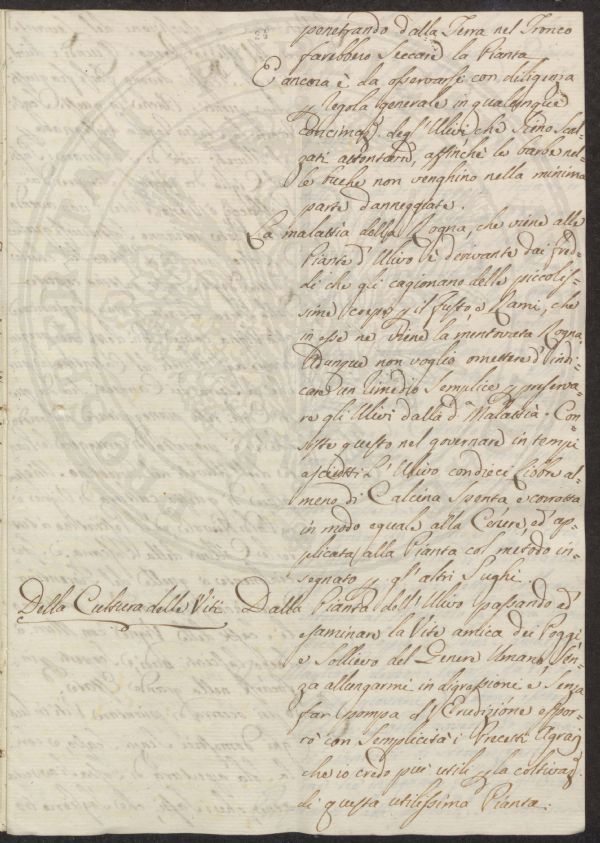 penetrando dalla Terra nel Tronco
farebbero Seccare la Pianta
E ancora è da osservarsi con diligenza
p regola generale in qualunque
Concimaz. degl'Ulivi che Sieno Scal-
zati attentam, affinchè le barbe nel-
le buche non venghino nella minima
parte danneggiate.
La malattia della Rogna, che viene alle
Piante d'Ulivo è derivante dai fred-
di che gli cagionano delle piccolis-
sime crepe p il fusto, e Rami, che
in esse ne viene la mentovata Rogna
Adunque non voglio omettere d'indi-
care un rimedio Semplice p preserva-
re gli Ulivi dalla d. Malattia. Con-
siste questo nel governare in tempi
asciutti l'Ulivo con dieci Libbre al-
meno di Calcina Spenta e corrotta
in modo eguale alla Cenere, ed ap-
plicata alla Pianta col metodo in-
segnato p gl'altri Sughi.
Della Cultura delle Viti Dalla Pianta dell'Ulivo passando ed
esaminare la Vite amica dei Poggi
e Sollievo del Genere Umano, Sen-
za allungarmi in digressioni e Senza
far pompa d'Erudizione espor-
rò con Semplicità i Precetti Agrarj
che io credo più utili p la coltivaz.
di questa utilissima Pianta.